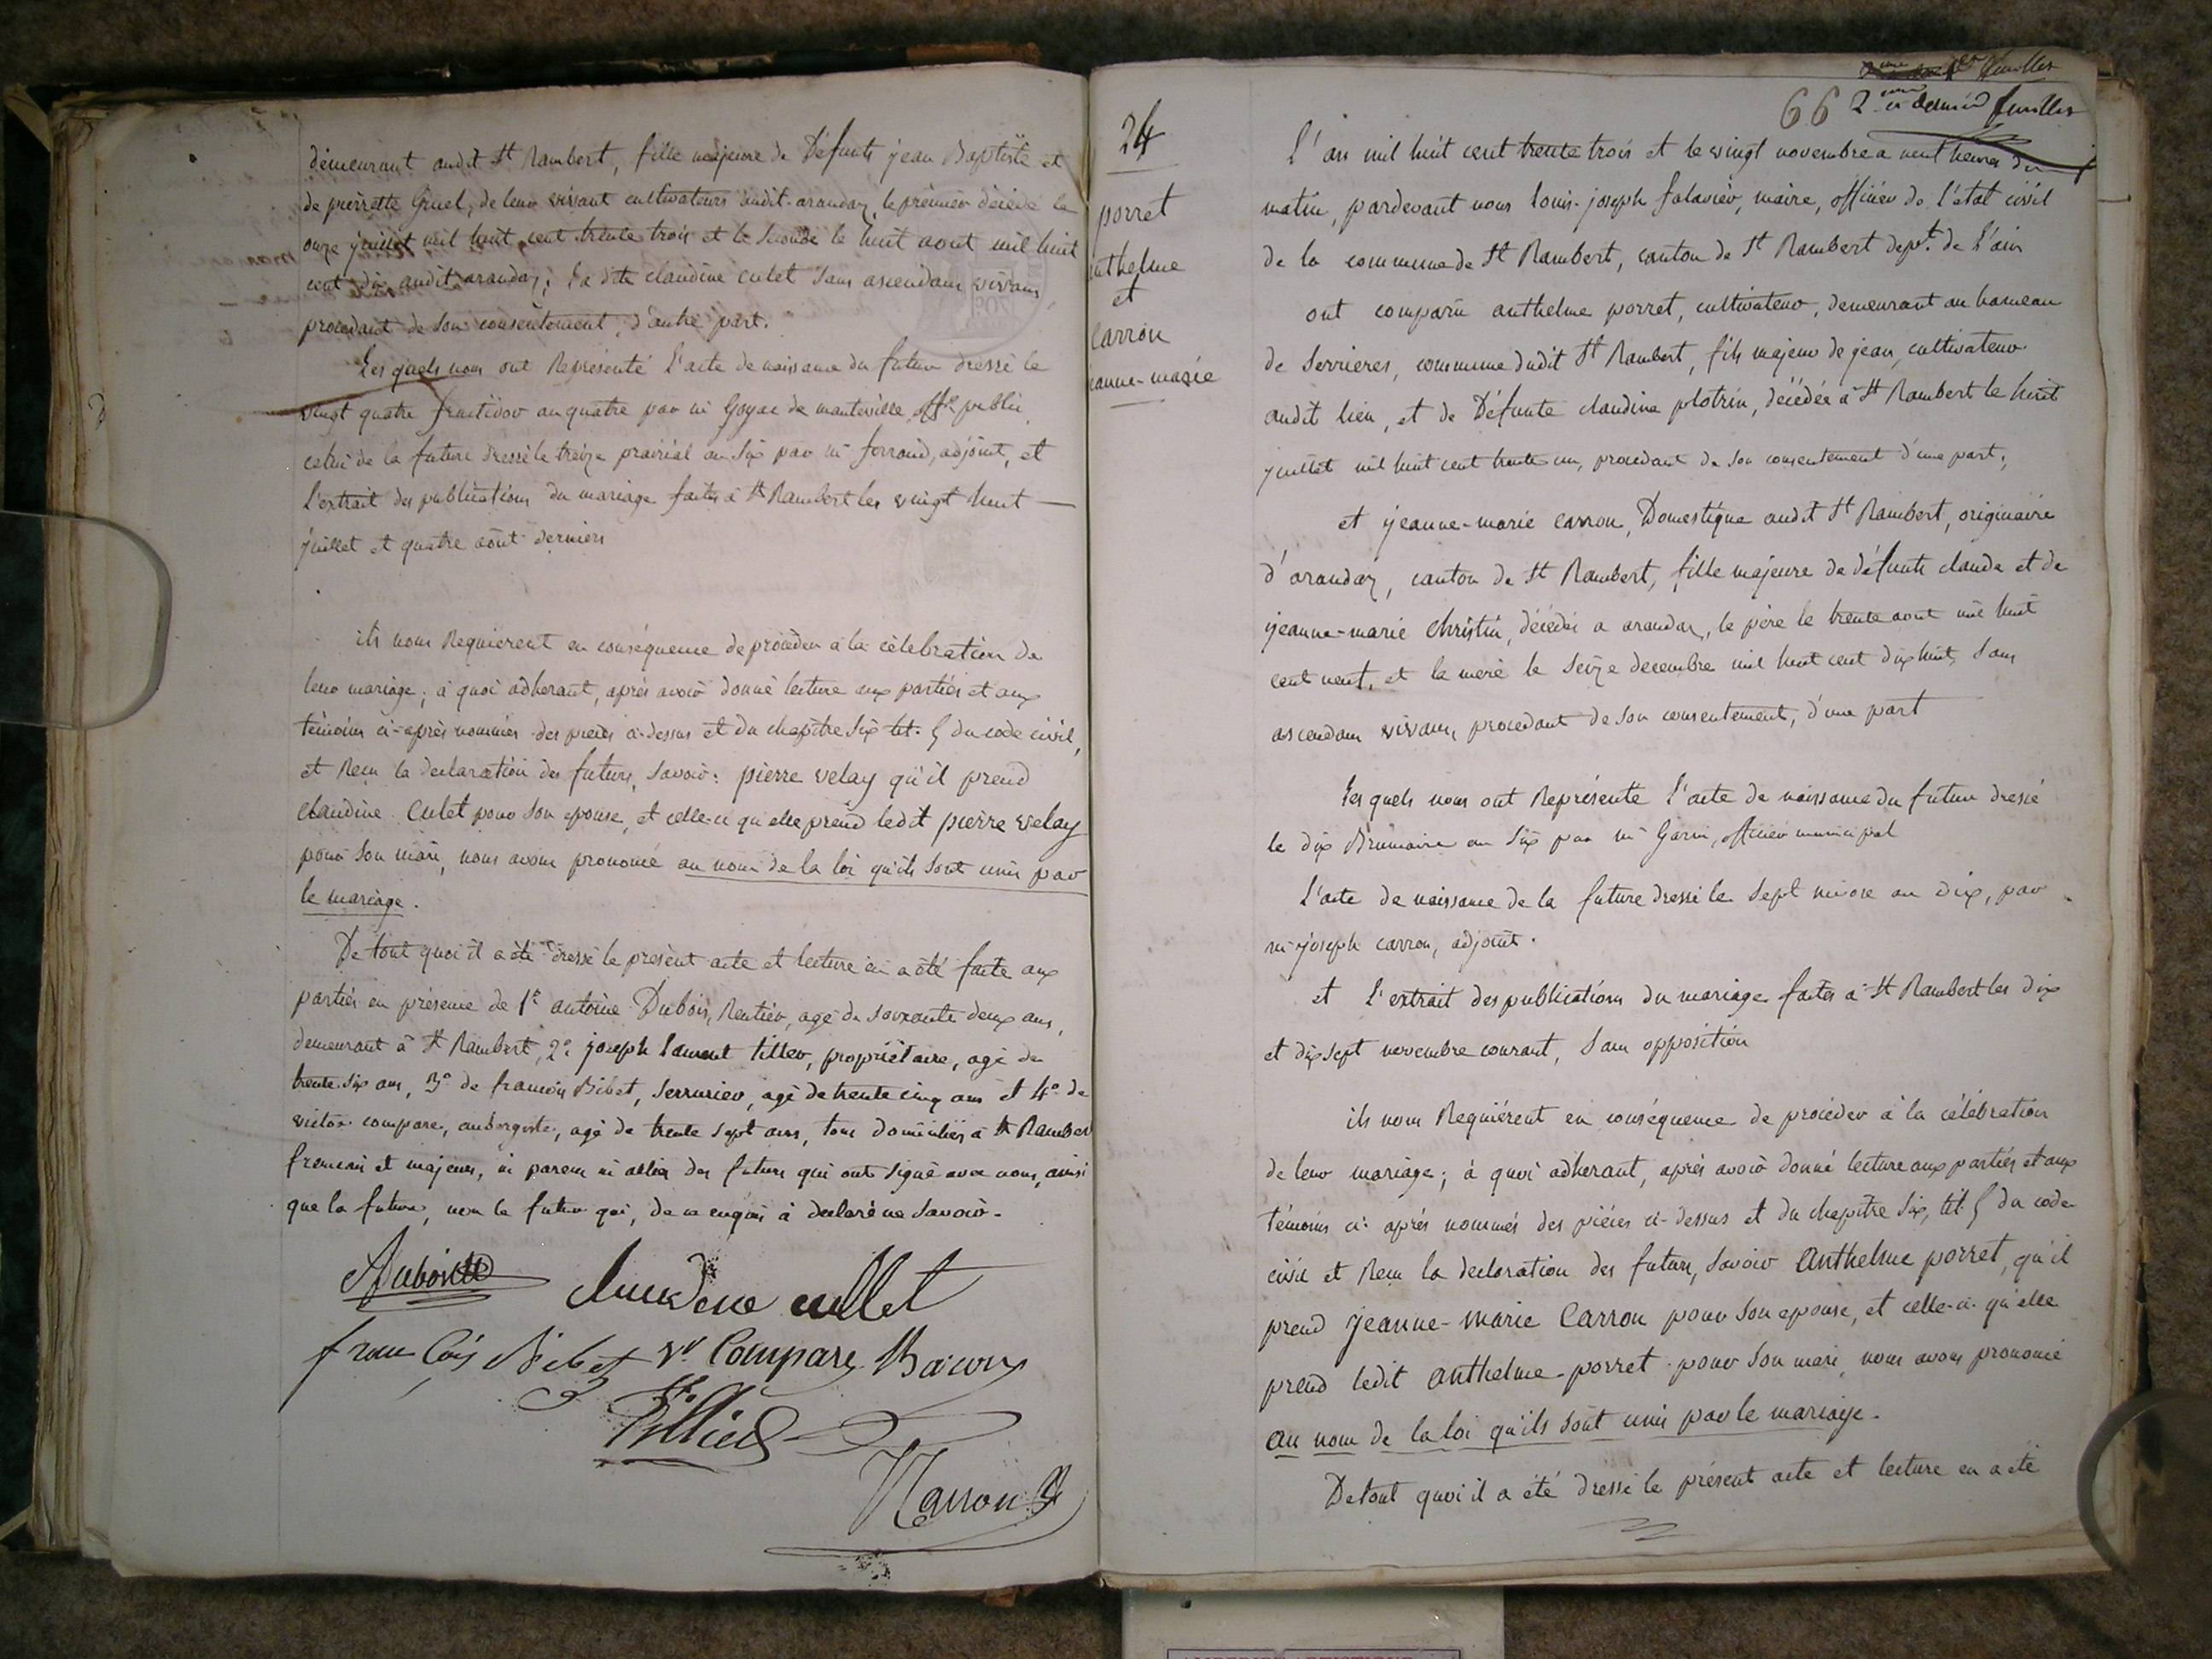 demeurant audit St Rambert, fille majeure de Défunts jean Baptiste et
de pierrette Gruel, de leur vivant cultivateurs audit arandaz, le premier décédé le
onze juillet mil huit cent trente trois et la seconde le huit aout mil huit
cent dix audit arandaz; La dite claudine culet sans ascendans vivans,
procedant de son consentement, d'autre part.
Les quels nous ont Représenté l'acte de naissance du futur dressé le
vingt quatre fructidor an quatre par mr Goyac de manteville offer public,
celui de la future dressé le treize prairial an six par mr ferrand, adjoint, et
L'extrait des publications du mariage faites à St Rambert les vingt huit
juillet et quatre aout derniers
ils nous Requierent en conséquence de procéder à la célébration de
leur mariage; à quoi adherant, après avoir donné lecture aux parties et aux
témoins ci-après nommés des pièces ci-dessus et du chapitre six tit. 5 du code civil,
et Reçu la declaration des futurs, savoir: pierre velay qu'il prend
claudine Culet pour son epouse, et celle-ci qu'elle prend ledit pierre velay
pour son mari, nous avons prononcé au nom de la loi qu'ils sont unis par
le mariage.
De tout quoi il a été dressé le présent acte et lecture en a été faite aux
parties en présence de 1° antoine Dubois, Rentier, agé de soixante deux ans,
demeurant à St Rambert, 2° joseph Laurent tillier, propriétaire, agé de
trente six ans, 3° de françois Bibet, serrurier, agé de trente cinq ans et 4° de
victor compare, aubergiste, agé de trente sept ans, tous domiciliés à St Rambert
français et majeurs, ni parens ni alliés des futurs qui ont signé avec nous, ainsi
que la future, non le futur qui, de ce enquis a declaré ne savoir.
ADubois
claudine cullet
françois Bibet vr Compare
Tillier
24
porret
anthelme
et
Carron
jeanne-marie
66 2eme et dernier feuillet
L'an mil huit cent trente trois et le vingt novembre a neuf heures du
matin, pardevant nous Louis-joseph falavier, maire, officier de l'état civil
de la commune de St Rambert, canton de St Rambert dept. de l'ain
ont comparu anthelme porret, cultivateur, demeurant au hameau
de Serrieres, commune dudit St Rambert, fils majeur de jean, cultivateur
audit lieu, et de Défunte claudine plotrin, décédée à St Rambert le huit
juillet mil huit cent trente un, procedant de son consentement d'une part;
et jeanne-marie carron, Domestique audit St Rambert, originaire
d'arandaz, canton de St Rambert, fille majeure de défunts claude et de
jeanne-marie christin, décédés a arandaz, le père le trente aout mil huit
cent neuf, et la mere le seize decembre mil huit cent dix huit, sans
ascendans vivans, procedant de son consentement, d'une part
Les quels nous ont Représenté l'acte de naissance du futur dressé
le dix Brumaire an six par mr Garin, officier municipal
L'acte de naissance de la future dressé le sept nivose an dix, par
mr joseph carron, adjoint.
et L'extrait des publications du mariage faites à St Rambert les dix
et dix sept novembre courant, sans opposition
ils nous Requiérent en conséquence de procéder à la célébration
de leur mariage; à quoi adherant, après avoir donné lecture aux parties et aux
témoins ci-après nommés des pièces ci-dessus et du chapitre six, tit. 5 du code
civil et Reçu la declaration des futurs, savoir Anthelme porret, qu'il
prend Jeanne-Marie Carron pour son epouse, et celle-ci qu'elle
prend ledit anthelme porret pour son mari, nous avons prononcé
au nom de la loi qu'ils sont unis par le mariage.
De tout quoi il a été dressé le présent acte et lecture en a été